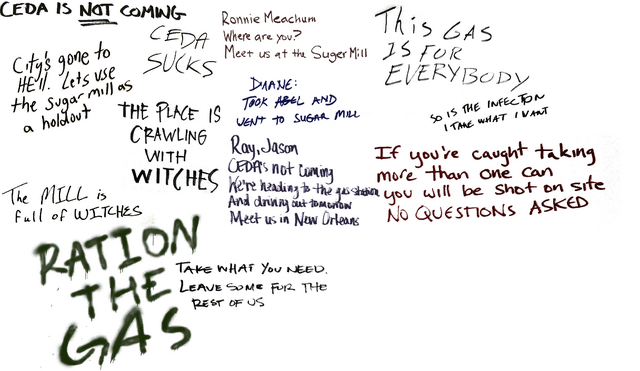 CEDA IS NOT COMING
CEDA
SUCKS
City's gone to
HE'll. Lets use
the sugar mill as
a holdout
THE PLACE IS
CRAWLING
WITH
WITCHES
The MILL is
full of WITCHES
RATION
THE
GAS
TAKE WHAT YOU NEED.
LEAVE SOME FOR THE
REST OF US
Ronnie Meachum
Where are you?
Meet us at the Suger Mill
DUANE:
TOOK ABEL AND
WENT TO SUGAR MILL
Ray, Jason
CEDA's not coming
We're heading to the gas station
And driving out tomorrow
Meet us in New Orleans
THIS GAS
IS FOR
EVERYBODY
SO IS THE INFECTION
I TAKE WHAT I WANT
If you're caught taking
more than one can
you will be shot on site
NO QUESTIONS ASKED